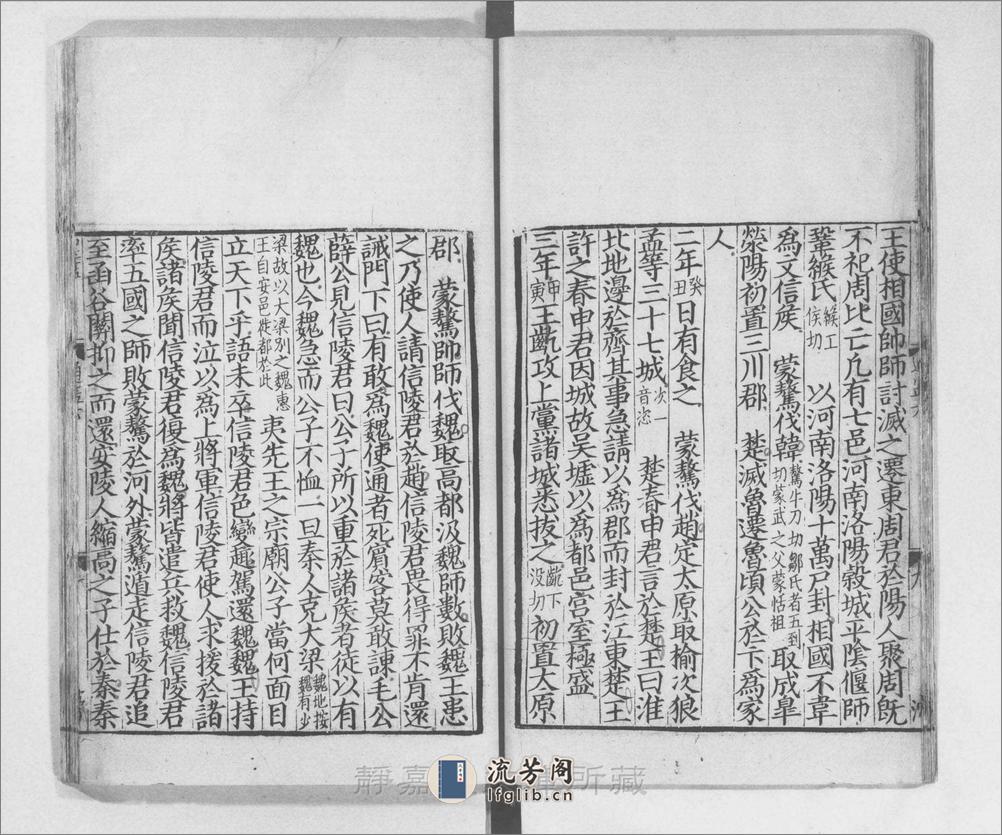 王使相國帥師討滅之遷東周君於陽人聚周旣
不祀周比亡凡有七邑河南洛陽穀城平陰偃師
鞏緱氏緱工侯切 以河南洛陽十萬戶封相國不韋
爲文信侯 蒙驁伐韓驁牛刀切鄒氏者五到切蒙武之父蒙恬祖取成皐
滎陽初置三川郡 楚滅魯遷魯頃公於卞爲家
人
二年癸丑日有食之 蒙驁伐趙定太原取榆次狼
孟等三十七城次一音恣 楚春申君言於楚王曰淮
北地邊於齊其事急請以爲郡而封於江東楚王
許之春申君因城故吳墟以爲都邑宮室極盛
三年甲寅王齕攻上黨諸城悉拔之齕下没切初置太原
郡 蒙驁帥師伐魏取高都汲魏師數敗魏王患
之乃使人請信陵君於趙信陵君畏得罪不肯還
誡門下曰有敢爲魏使通者死賓客莫敢諫毛公
薛公見信陵君曰公子所以重於諸侯者徒以有
魏也今魏急而公子不恤一旦秦人克大梁魏地按魏有少梁故以大梁別之魏惠王自安邑徙都於此
夷先王之宗廟公子當何面目
立天下乎語未卒信陵君色變趣駕還魏魏王持
信陵君而泣以爲上將軍信陵君使人求援於諸
侯諸侯聞信陵君復爲魏將皆遣兵救魏信陵君
率五國之師敗蒙驁於河外蒙驁遁走信陵君追
至函谷關抑之而還安陵人縮高之子仕於秦秦
流芳阁
lfglib.cn
靜嘉 所藏